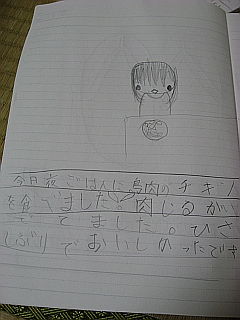 今日夜ごはんに鳥肉のチキン
を食べました。肉じるがい
でてました。ひさ
しぶりでおいしかったです